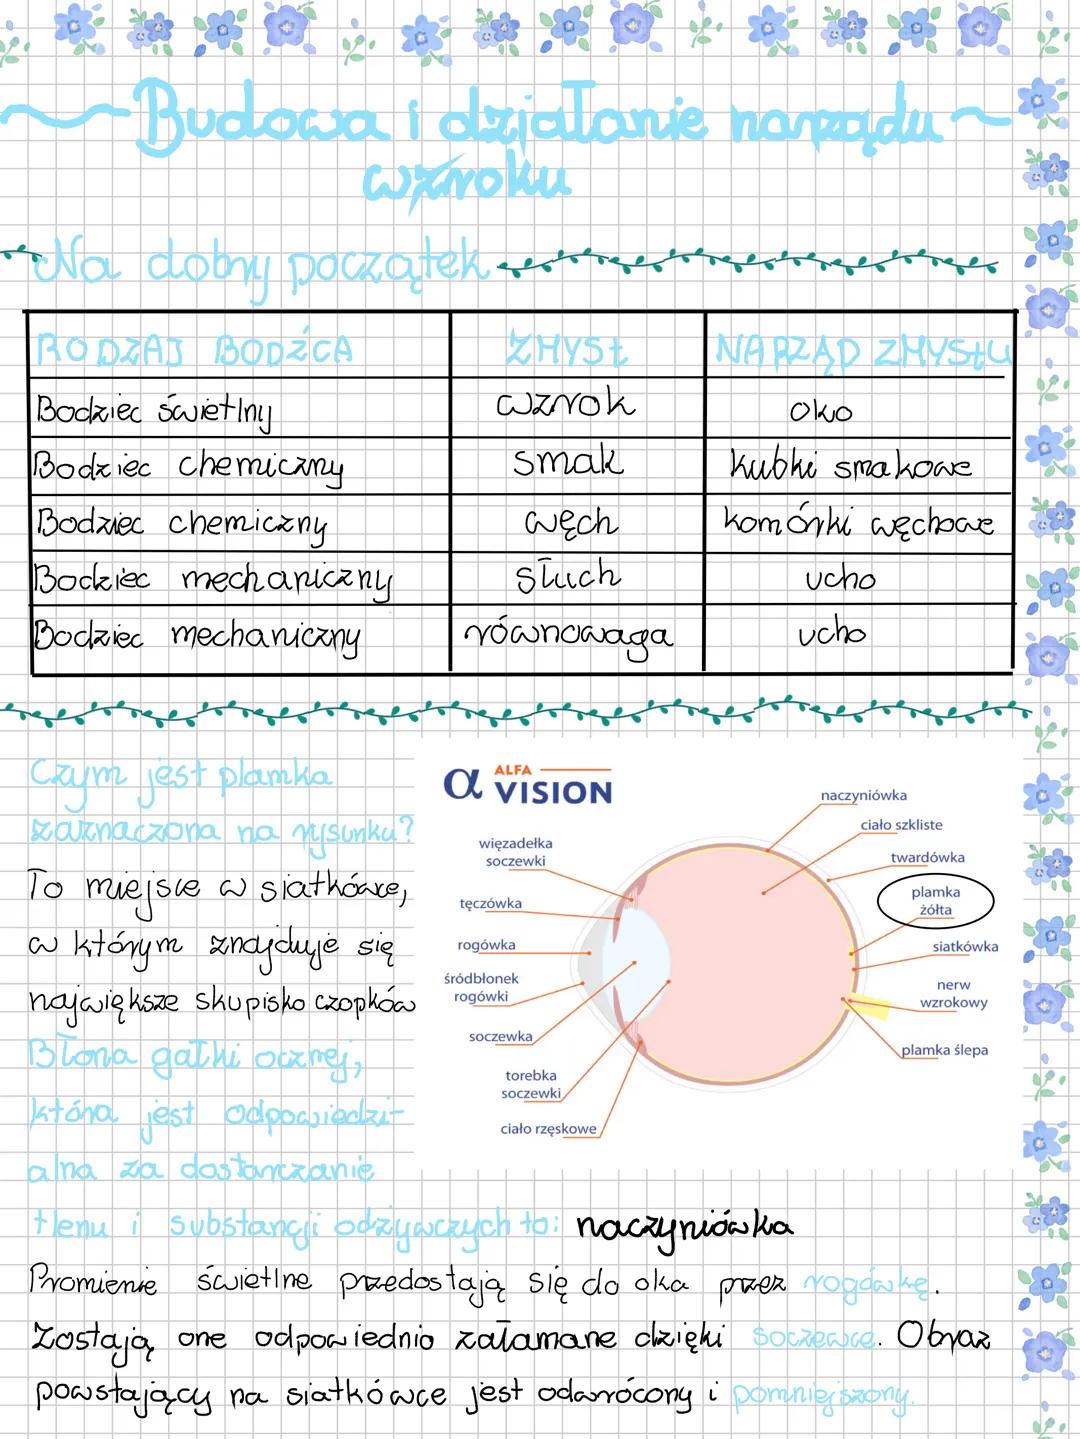 Budowa i działanie narządu
wzroku
Na dobry początek
RODZAJ BODŹCA ZMYSŁ NARZĄD ZMYSŁU
Bodziec świetlny wzrok oko
Bodziec chemiczny smak kubki smakowe
Bodziec chemiczny węch komórki węchowe
Bodziec mechaniczny słuch ucho
Bodziec mechaniczny równowaga ucho
Czym jest plamka
zaznaczona na rysunku?
To miejsce w siatkówce,
w którym znajduje się
największe skupisko czopków
Błona gałki ocznej,
która jest odpowiedzi-
alna za dostarczanie
tlenu i substancji odżywczych to: naczyniówka
α ALFA
VISION
naczyniówka
ciało szkliste
twardówka
plamka
żółta
siatkówka
nerw
wzrokowy
plamka ślepa
więzadełka
soczewki
tęczówka
rogówka
śródbłonek
rogówki
soczewka
torebka
soczewki
ciało rzęskowe
Promienie świetlne przedostają się do oka przez rogówkę.
Zostają one odpowiednio załamane dzięki soczewce. Obraz
powstający na siatkówce jest odwrócony i pomniejszony.